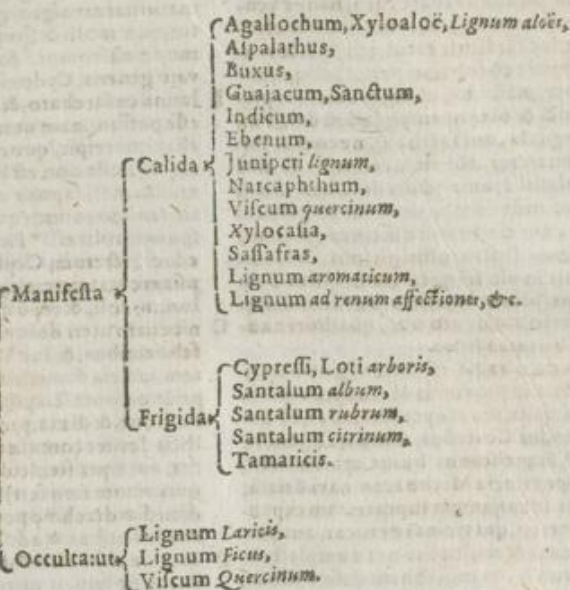 Agallochum, Xyloaloë, Lignum aloës,
Aſpalathus,
Buxus,
Guajacum, Sanctum,
Indicum,
Ebenum,
Calida
Juniperi lignum,
Narcaphthum,
Viſcum quercinum,
Xylocaſia,
Saſſafras,
Lignum aromaticum,
Manifeſta
Lignum ad renum affectiones, &c.
Cypreſſi, Loti arboris,
Santalum album,
Frigida
Santalum rubrum,
Santalum citrinum,
Tamaricis.
Lignum Laricis,
Occulta: ut
Lignum Ficus,
Viſcum Quercinum.